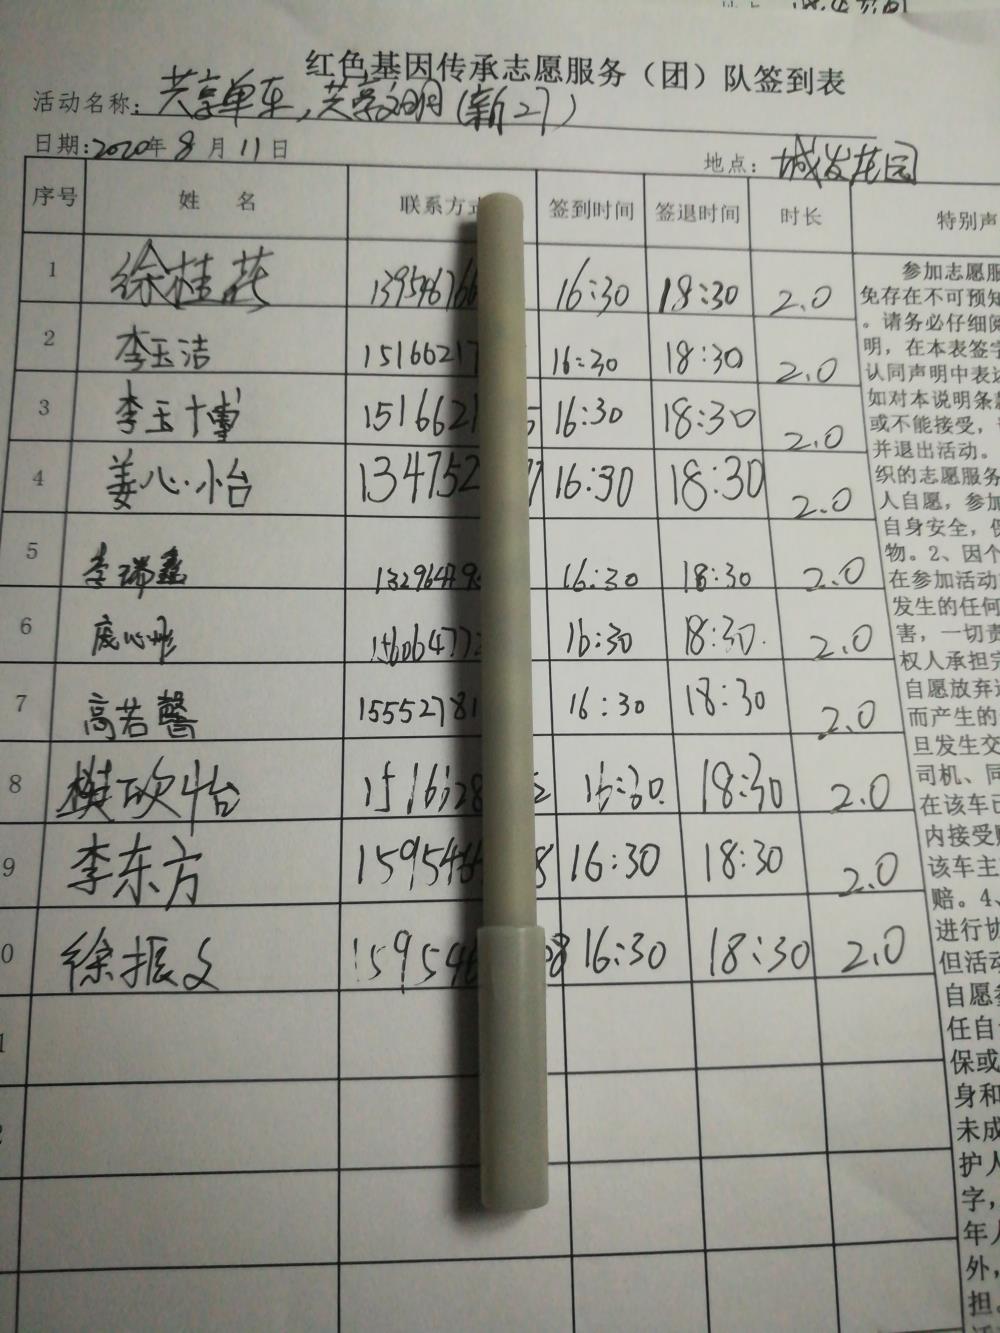 红色基因传承志愿服务（团）队签到表
活动名称：共享单车，共享文明（新27）
日期：2020年8月11日
地点：城发花园
序号 姓名 联系方式 签到时间 签退时间 时长 特别声
1 徐桂花 139546766 16:30 18:30 2.0
2 李玉洁 15166217 16:30 18:30 2.0
3 李玉博 1516621 5 16:30 18:30 2.0
4 姜心怡 134752 77 16:30 18:30 2.0
5 李瑞鑫 16:30 18:30 2.0
6 庞心彤 156064772 16:30 18:30 2.0
7 高若馨 15552781 16:30 18:30 2.0
8 樊砍怡 1516628 2 16:30 18:30 2.0
9 李东方 159546 8 16:30 18:30 2.0
0 徐振文 159546 08 16:30 18:30 2.0
1
2
参加志愿服
免存在不可预知
。请务必仔细阅
明，在本表签字
认同声明中表达
如对本说明条款
或不能接受，
并退出活动。
织的志愿服务
人自愿，参加
自身安全，保
物。2、因个
在参加活动
发生的任何
害，一切责
权人承担完
自愿放弃追
而产生的
旦发生交
司机、同
在该车已
内接受赔
该车主
赔。4、
进行协
但活动
自愿参
任自
保或
身和
未成
护人
字，
年人
外，
担。